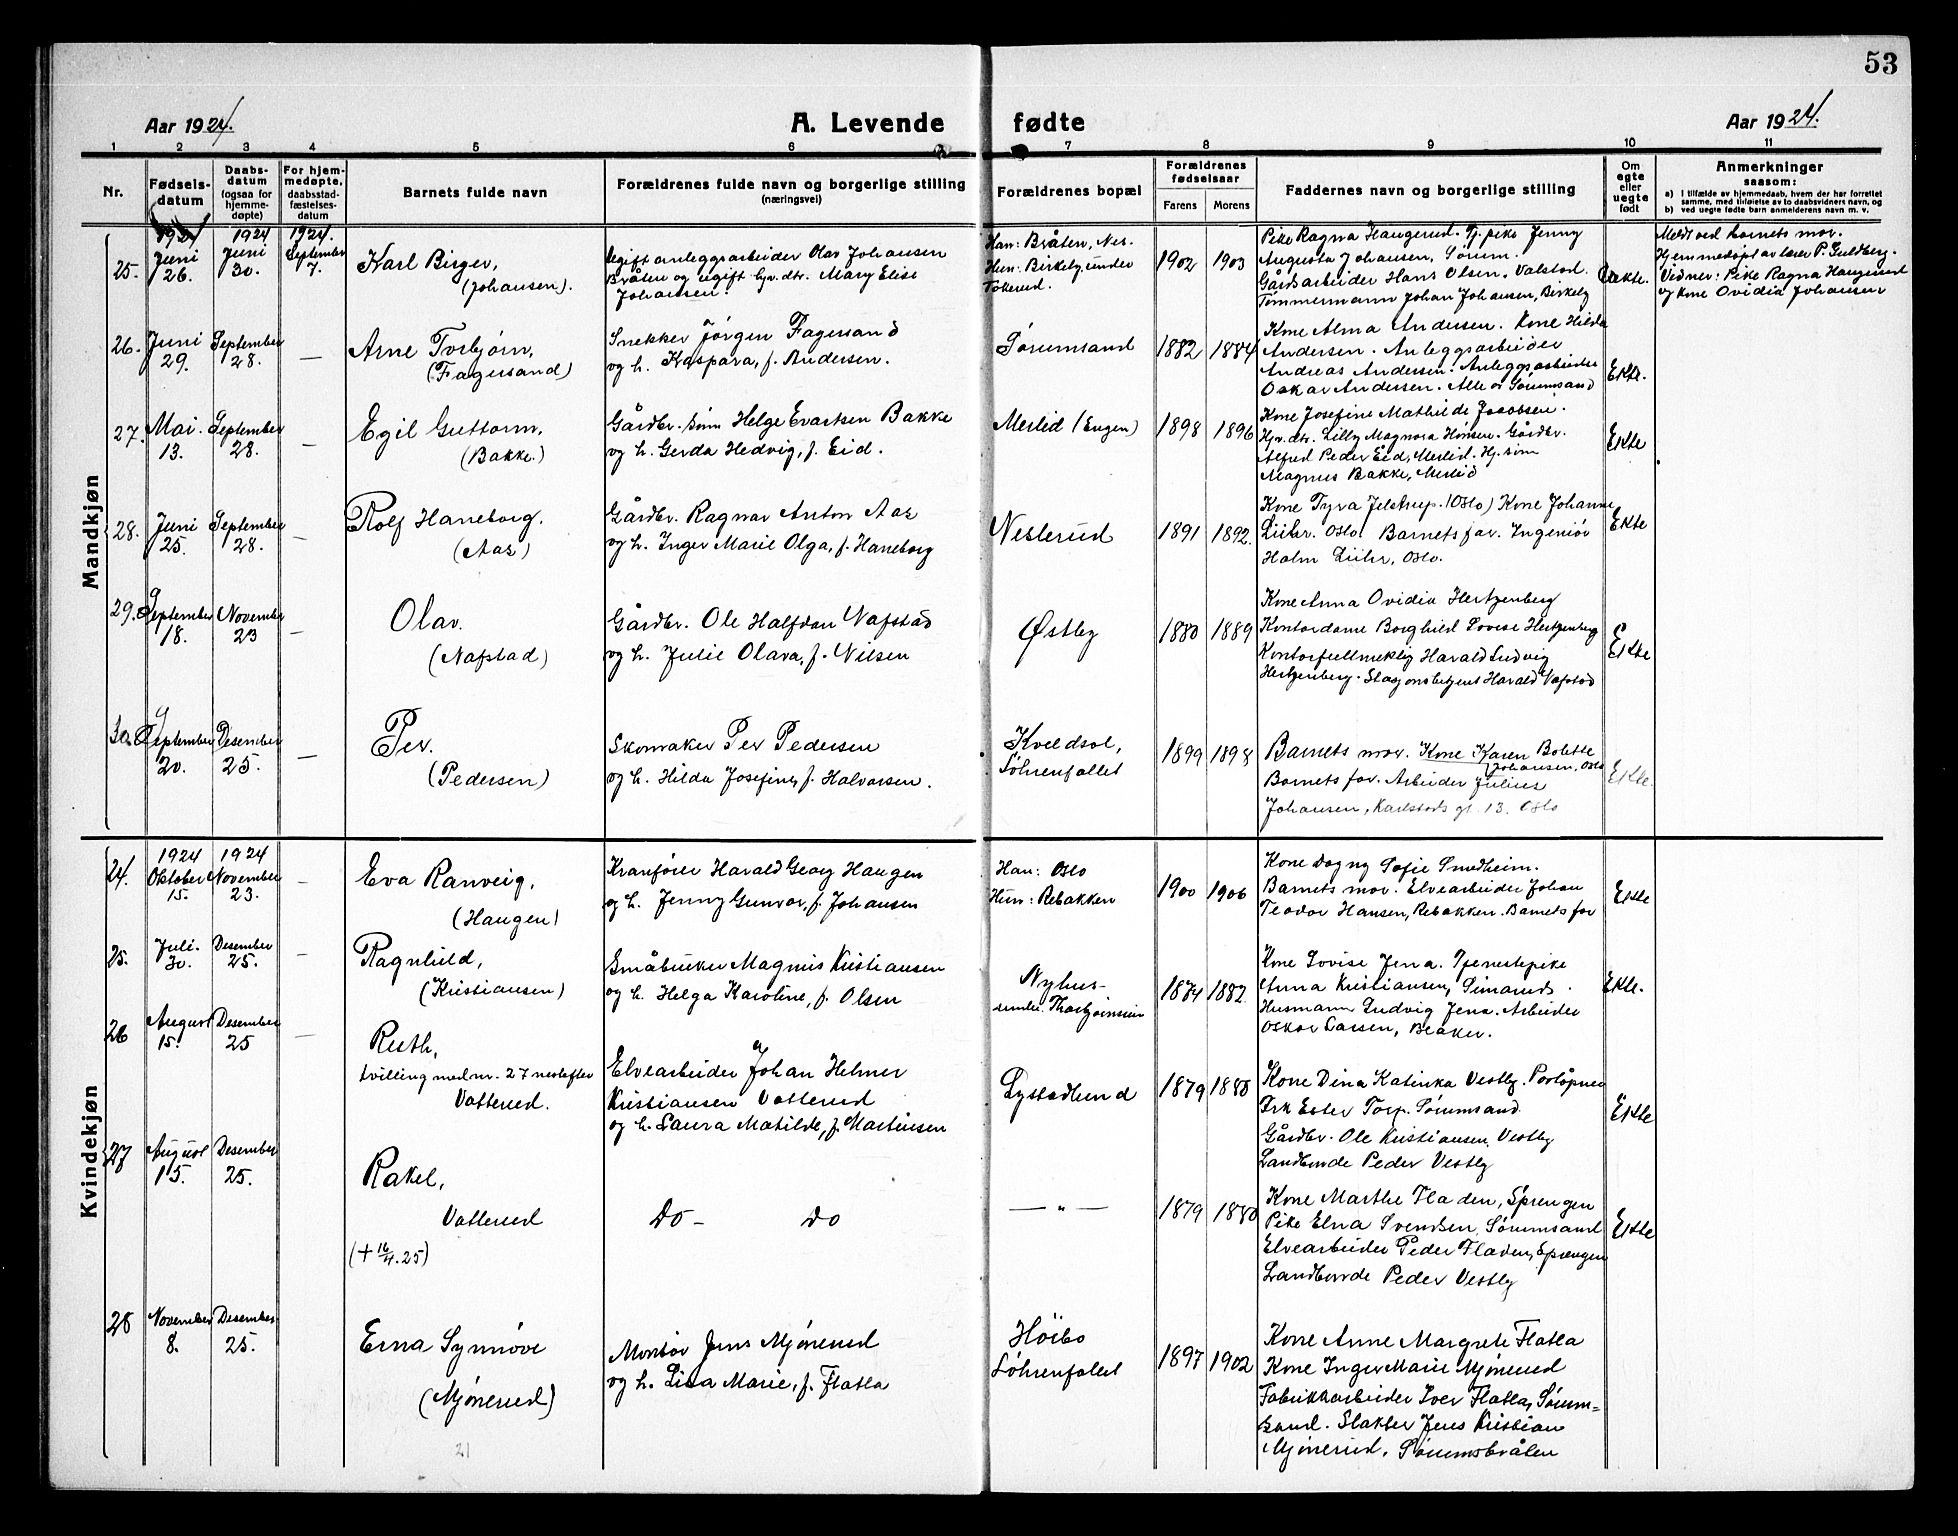 53
Aar 1924.
A. Levende fødte
Aar 1924.
1 2 3 4 5 6 7 8 9 10 11
Nr.
Fødsels-
datum
Daabs-
datum
(ogsaa for
hjemme-
døpte)
For hjem-
medøpte,
daabsstad-
fæstelses-
datum
Barnets fulde navn
Forældrenes fulde navn og borgerlige stilling
(næringsvei)
Forældrenes bopæl
Forældrenes
fødselsaar
Farens Morens
Faddernes navn og borgerlige stilling
Om
egte
eller
uegte
født
Anmerkninger
saasom:
a) I tilfælde av hjemmedaab, hvem der har forrettet
samme, med tilføielse av to daabsvidners navn, og
b) ved uegte fødte barn anmelderens navn m. v.
Mandkjøn
1924 1924 1924.
25.
Juni
26.
Juni
30.
September
7.
Karl Birger,
(Johansen).
Ugift anleggsarbeider Olav Johansen
Bråten og ugift hjv. dtr. Mary Elise
Johansen.
Han: Bråten, Nes.
Hun: Birkely, under
Tokerud.
1902 1903
Pike Ragna Haugerud. Tj. pike Jenny
Augusta Johansen, Sørum.
Gårdsarbeider Hans Olsen, Valstad.
Tømmermann Johan Johansen, Birkely
Uekte.
Meldt ved barnets mor.
Hjemmedøpt av lærer P. Guldberg.
Vidner: Pike Ragna Haugerud
og kone Ovidia Johansen
26.
Juni
29.
September
28.
—
Arne Torbjørn,
(Fagersand)
Snekker Jörgen Fagersand
og h. Kaspara, f. Andersen.
Sørumsand
1882 1884
Kone Alma Andersen. Kone Hilda
Andersen. Anleggsarbeider
Andreas Andersen. Anleggsarbeider
Oskar Andersen. Alle av Sørumsand
Ekte.
27.
Mai.
13.
September
28.
—
Egil Guttorm,
(Bakke.)
Gårdbr. sønn Helge Evartsen Bakke
og h. Gerda Hedvig, f. Eid.
Merlid (Engen)
1898 1896
Kone Josefine Mathilde Jacobsen.
Hjv. dtr. Lilly Magnora Hansen. Gårdbr.
Alfred Peder Eid, Merlid. Hj. sønn
Magnus Bakke, Merlid
Ekte
28.
Juni
25.
September
28.
—
Rolf Haneborg.
(Aas)
Gårdbr. Ragnar Anton Aas
og h. Inger Marie Olga, f. Haneborg
Nesterud
1891 1892.
Kone Tyra Jelstrup. (Oslo) Kone Johanne
Lüthr. Oslo. Barnets far. Ingeniør
Holm Lüthr, Oslo.
Ekte
29.
September
18.
November
23
—
Olav.
(Nafstad)
Gårdbr. Ole Halfdan Nafstad
og h. Julie Olava, f. Nilsen
Østby
1880 1889
Kone Anna Ovidia Hertzenberg
Kontordame Borghild Lovise Hertzenberg
Kontorfullmektig Harald Ludvig
Hertzenberg. Stasjonsbetjent Harald Nafstad
Ekte
30.
September
20.
Desember
25.
—
Per.
(Pedersen)
Skomaker Per Pedersen
og h. Hilda Josefine, f. Halvorsen.
Kveldsol,
Löhrenfallet
1899 1898
Barnets mor. Kone Karen Bolette
Johansen, Oslo
Barnets far. Arbeider Julius
Johansen, Karlstads gt. 13. Oslo
Ekte.
Kvindekjøn
1924 1924
24.
Oktober
15.
November
23.
—
Eva Ranveig,
(Haugen)
Kranfører Harald Georg Haugen
og h. Jenny Gunvor, f. Johansen
Han: Oslo
Hun: Rebakken
1900 1906
Kone Dagny Sofie Smedheim.
Barnets mor. Elvearbeider Johan
Teodor Hansen, Rebakken. Barnets far
Ekte
25.
Juli.
30.
Desember
25.
—
Ragnhild,
(Kristiansen)
Småbruker Magnus Kristiansen
og h. Helga Karoline, f. Olsen
Nyhus-
under Thorbjörnsen
1874 1882
Kone Lovise Jena. Tjenestepike
Anna Kristiansen,
Husmann Ludvig Jena. Arbeider
Oskar Larsen, Beaker.
Ekte.
26
August
15.
Desember
25
—
Ruth,
tvilling med nr. 27 nestefter
Vatterud.
Elvearbeider Johan Helmer
Kristiansen Vatterud
og h. Laura Matilde, f. Martinsen
Lystadlund
1879 1880
Kone Dina Katinka Vestby.
Frk Ester Torp. Sørumsand.
Gårdbr. Ole Kristiansen, Vestby
Landhende Peder Vestby
Ekte
27
August
15.
Desember
25.
Rakel,
Vatterud
(+ 16/4. 25)
Do - Do
— „ —
1879 1880
Kone Marthe Fladen, Sprengen
Pike Elna Svendsen, Sørumsand
Elvearbeider Peder Fladen, Sprengen
Landhende Peder Vestby
Ekte
28
November
8.
Desember
25.
Erna Synnöve
(Mjønerud)
21
Montør Jens Mjønerud
og h. Lisa Marie, f. Flatla
Höibo
Löhrenfallet
1897 1902
Kone Anne Margrete Flatla
Kone Inger Marie Mjønerud
Fabrikkarbeider Iver Flatla, Sørum=
sand. Slakter Jens Kristian
Mjønerud, Sørumsbråten